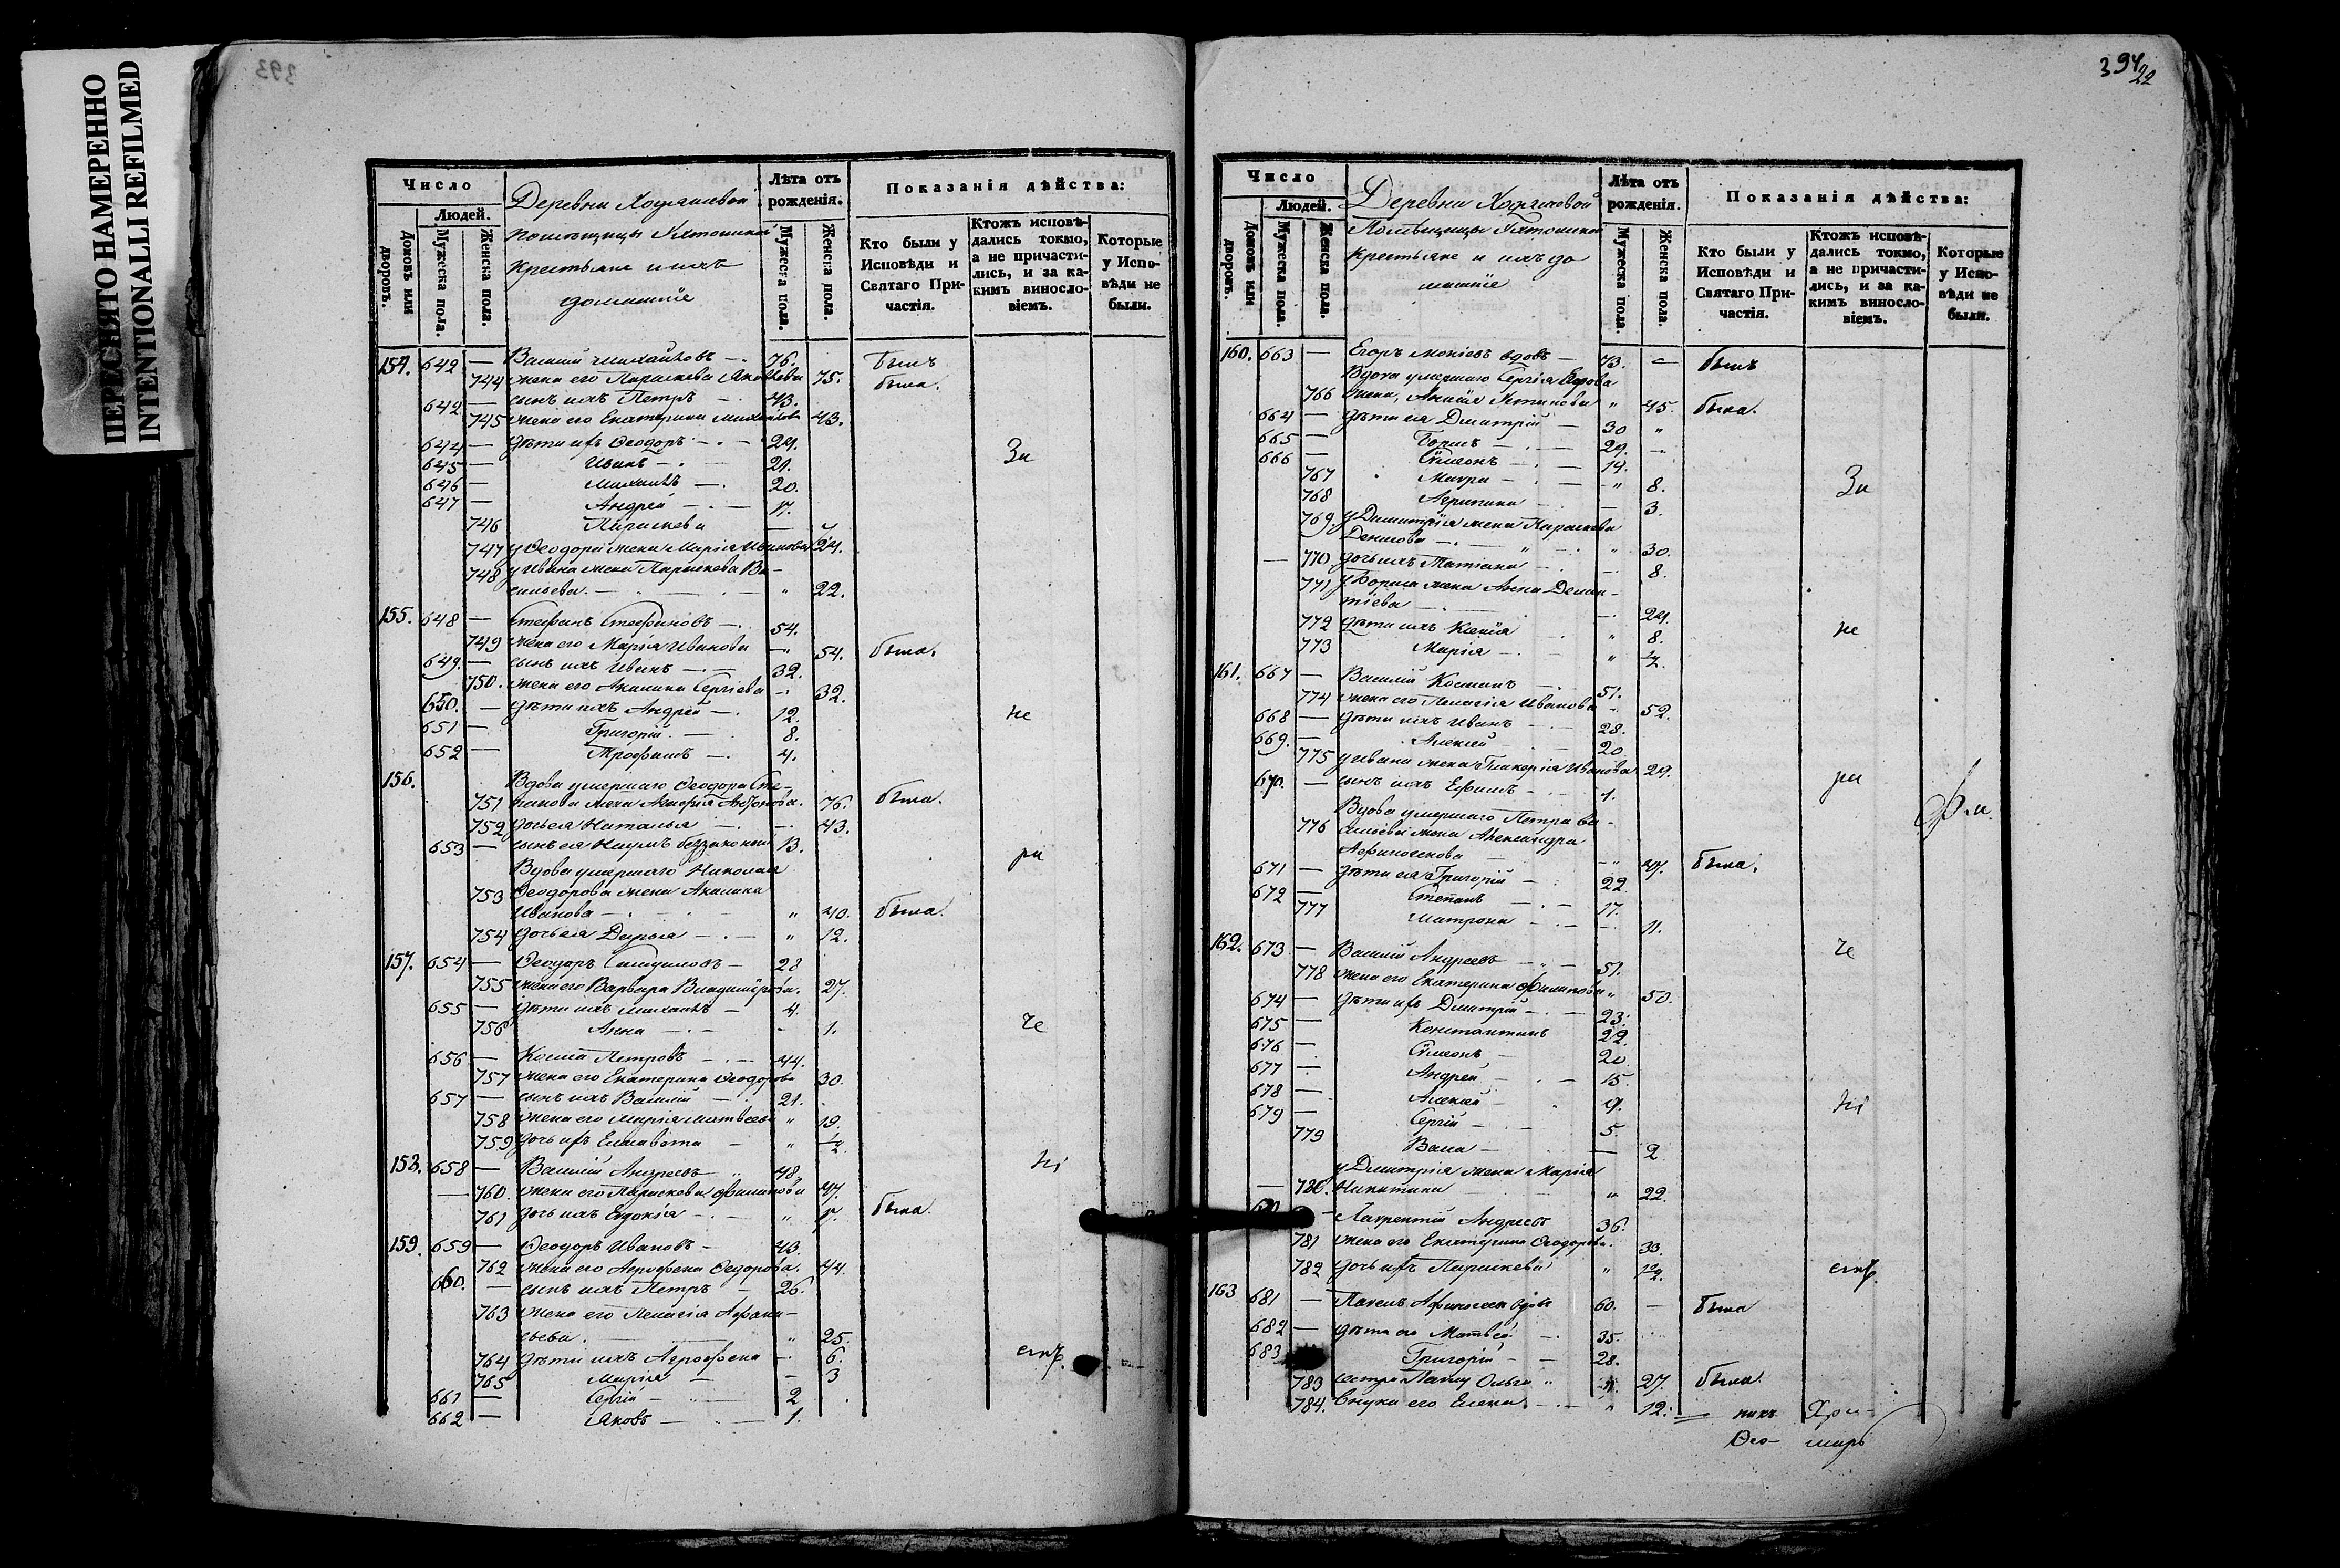 ПЕРЕСНЯТО НАМЕРЕННО
INTENTIONALLI REFILMED
393
Число
Людей.
Домовъ или дворовъ.
Мужеска пола.
Женска пола.
Деревни
помѣщицы
крестьяне и ихъ
домашніе
Лѣта отъ рожденія.
Мужеска пола.
Женска пола.
Показанія дѣйства:
Кто были у Исповѣди и Святаго Причастія.
Ктожъ исповѣдались токмо, а не причастились, и за какимъ винословіемъ.
Которые у Исповѣди не были.
154. 642 — Василій Михайловъ — 76. былъ
744 жена его Параскева Яковлева 75. была.
642 — сынъ ихъ Петръ — 43.
745 жена его Екатерина Михайлова 43.
644 — дѣти ихъ Ѳеодоръ — 24.
645 — Иванъ — 21. За
646 — Михаилъ — 20.
647 — Андрей — 17.
746 Параскева —
747 у Ѳеодора жена Марія Иванова 24.
748 у Ивана жена Параскева Ва-
сильева. — " 22.
155. 648 — Стефанъ Стефановъ — 54.
749 жена его Марія Иванова — 54. была.
649. — сынъ ихъ Иванъ — 32.
750. жена его Акилина Сергіева — 32.
650. — дѣти ихъ Андрей — 12. не
651 — Григорій. — 8.
652 — Трофимъ — 4.
156. Вдова умершаго Ѳеодора Сте-
751 панова жена 76. была.
752 дочь ея Наталья — 43.
653 — сынъ ея Наумъ 13. ра
Вдова умершаго Николая
753 Ѳеодорова жена Акилина
Иванова — " 40. была.
754 дочь ея Дарья — " 12.
157. 654 — Ѳеодоръ 28
755 жена его Варвара Владимірова. 27.
655 — дѣти ихъ Михаилъ — 4.
756 Анна — 1. че
656 — Косма Петровъ — 44.
757 жена его Екатерина Ѳеодорова 30.
657 — сынъ ихъ Василій — 21.
758 жена его Марія Матвеева " 19.
759 дочь ихъ Елисавета — " 1/2
158. 658 — Василій Андреевъ " 48. ні
— 760. жена его Параскева Филипова 47.
761 дочь ихъ Евдокія — " 17. была.
159. 659 — Ѳеодоръ Ивановъ — 43.
762 жена его Агрофена Ѳедорова. 44.
660. — сынъ ихъ Петръ — 26.
763 жена его Пелагія Афана-
сьева. " 25.
764 дѣти ихъ Агрофена — 6.
765 Марія — 3
661 — Сергій — 2
662 — Яковъ — 1.
394
22
Число
Людей.
Домовъ или дворовъ.
Мужеска пола.
Женска пола.
Деревни
Помѣщицы
крестьяне и ихъ до
машніе
Лѣта отъ рожденія.
Мужеска пола.
Женска пола.
Показанія дѣйства:
Кто были у Исповѣди и Святаго Причастія.
Ктожъ исповѣдались токмо, а не причастились, и за какимъ винословіемъ.
Которые у Исповѣди не были.
160. 663 — Егоръ вдовъ — 73. — былъ
Вдова умершаго Сергія Егорова
766 жена, " 45. была.
664 — дѣти ея Димитрій — 30 "
665 — Борисъ — 29.
666 — Симеонъ — 14.
767 Мавра — " 8. За
768 Агрипина — 3.
769 у Димитрія жена Параскева
Денисова — " 30.
— 770 дочь ихъ Татіана — 8.
771 у Бориса жена Анна Демен-
тіева — 24.
772 дѣти ихъ Ксенія " 8. не
773 Марія — " 1/2.
161. 667 — Василій Косминъ 51.
774 жена его Пелагія Иванова — 52.
668 — дѣти ихъ Иванъ — 28.
669. — Алексій 20
775 у Ивана жена Гликерія Иванова 29.
670. — сынъ ихъ Ефимъ — 1. ра
Вдова умершаго Петра Ва-
776 сильева жена Александра
47. была.
671 — дѣти ея Григорій — 22
672 — Степанъ — 17.
777 Матрона — 11.
162. 673 — Василій Андреевъ — 51. че
778 жена его Екатерина Филипова " 50.
674 — дѣти ихъ Дмитрій — 23.
675 — Константинъ 22.
676 — Симеонъ — 20
677 — Андрей — 15.
678 — Алексій — 9. ні
679 — Сергій — 5.
779 Васса — 2
у Димитрія жена Марія
— 780. Никитина " 22.
Лаврентій Андреевъ 36.
781 жена его Екатерина Ѳеодорова. 33.
782 дочь ихъ Параскева " 1/2.
163 681 — Павелъ вдовъ 60. — былъ
682 — дѣти его Матвей — 35.
683 Григорій — 28.
783 Ольга " 27. была.
784. внука его Елена — " 12.